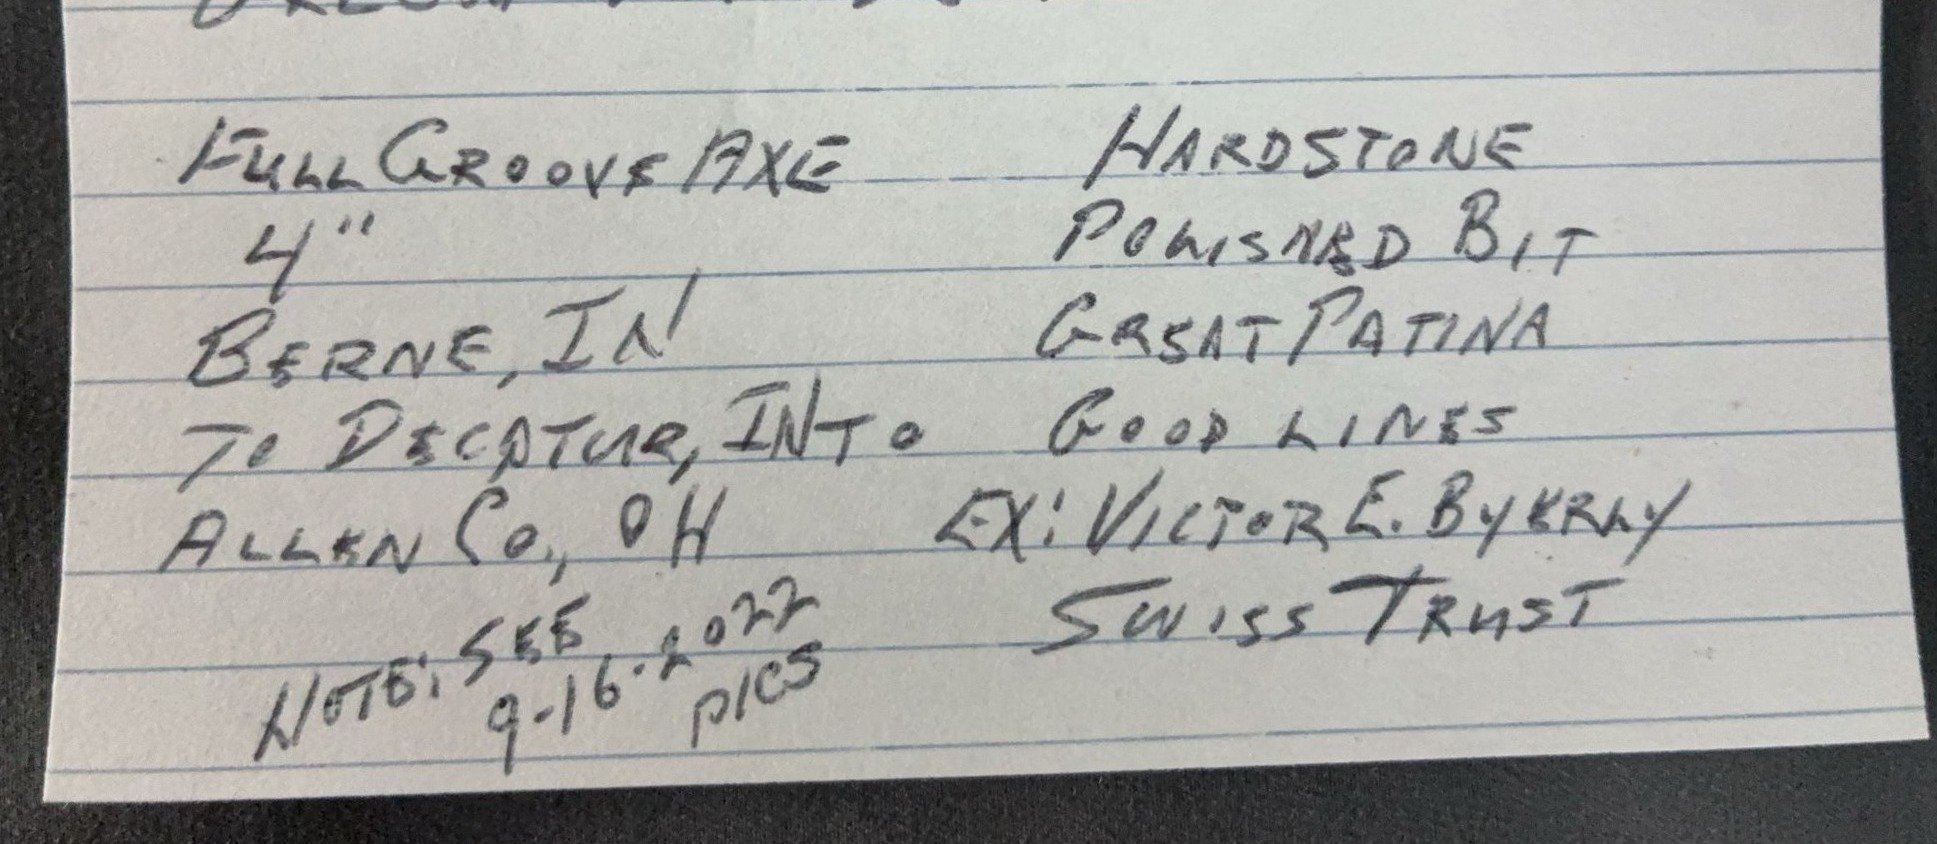 FULL GROOVE AXE
4"
BERNE, IN
TO DECATUR, IN TO
ALLEN CO., OH
NOTE: SEE
9-16-2022
PICS
HARDSTONE
POLISHED BIT
GREAT PATINA
GOOD LINES
EX: VICTOR E. BYERLY
SWISS TRUST